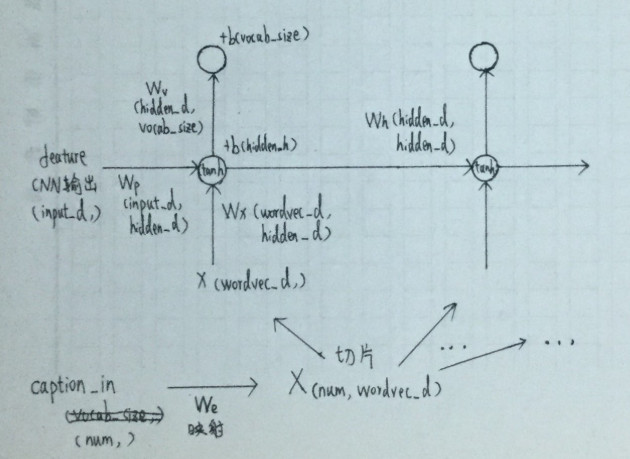 +b(vocab_size)
Wv
(hidden_d,
vocab_size)
Wh (hidden_d,
hidden_d)
+b(hidden_h)
feature
CNN输出
(input_d,)
tanh
tanh
Wp
(input_d,
hidden_d)
Wx (wordvec_d,
hidden_d)
X (wordvec_d,)
切片
...
...
caption_in
(vocab_size,)
(num,)
We
映射
X (num, wordvec_d)